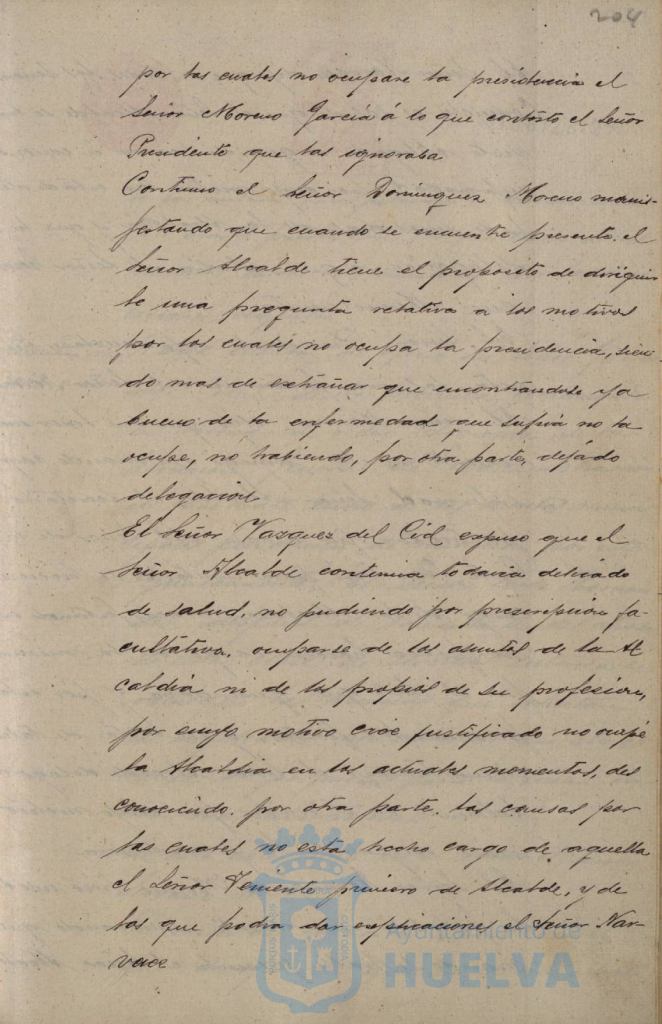 204
por las cuales no ocupare la presidencia el
Señor Moreno García á lo que contestó el Señor
Presidente que las ignoraba
Continuo el Señor Dominguez Moreno mani-
festando que cuando se encuentre presente el
Señor Alcalde tiene el proposito de dirigir
le una pregunta relativa a los motivos
por los cuales no ocupa la presidencia, sien-
do mas de extrañar que encontrandose ya
bueno de la enfermedad que sufria no la
ocupe, no habiendo, por otra parte, dejado
delegacion
El Señor Vazquez del Cid expuso que el
Señor Alcalde continua todavia delicado
de salud, no pudiendo por prescripcion fa-
cultativa, ocuparse de los asuntos de la Al
caldia ni de los propios de su profesion,
por cuyo motivo cree justificado no ocupe
la Alcaldia en los actuales momentos, des
conociendo, por otra parte, las causas por
las cuales no está hecho cargo de aquella
el Señor Teniente primero de Alcalde, y de
las que podra dar explicaciones el Señor Nar-
vaez
Ayuntamiento de
HUELVA